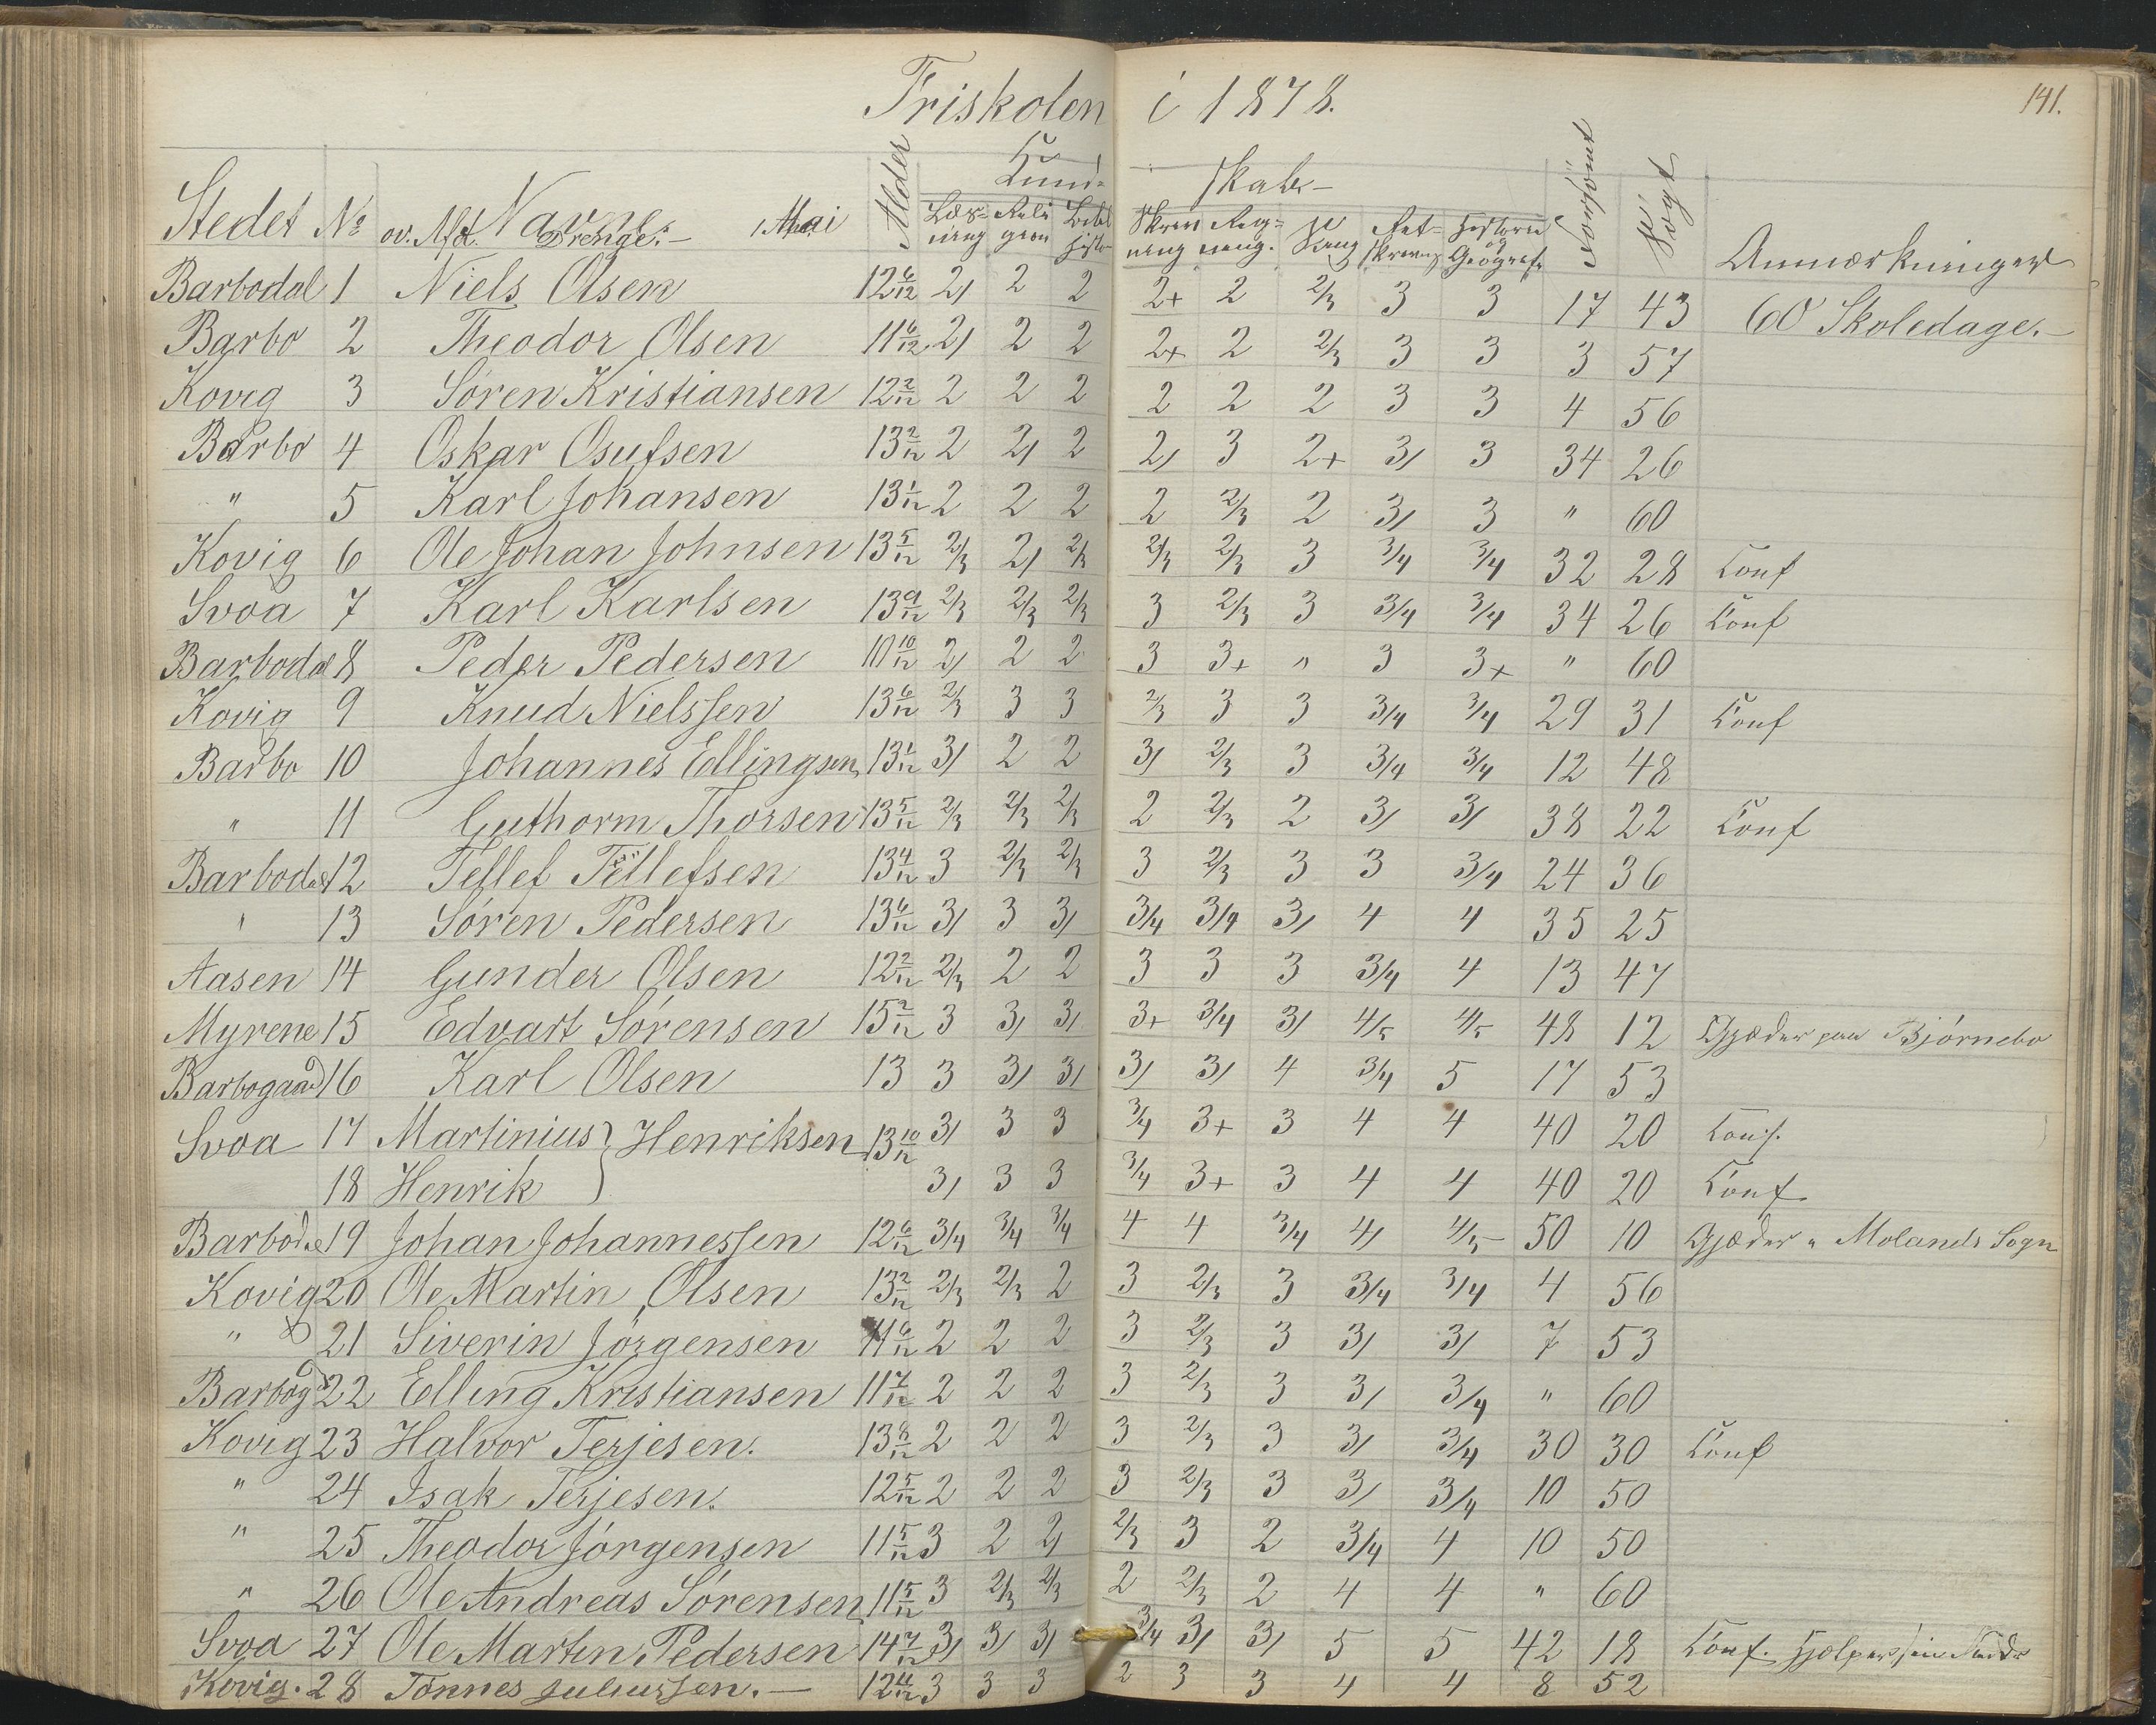 Friskolen i 1878.
141.
Stedet No ov. Afd. Navne Drenge.- 1 Mai Alder Kund- skab- Forsömt Sögt Anmærkninger
Læs- ning Reli gion Bibel histo Skriv ning Reg- ning. Sang Ret- skrivng Historie og Geografi
Barbodal 1 Niels Olsen 12 6/12 2/ 2 2 2+ 2 2/3 3 3 17 43 60 Skoledage.-
Barbo 2 Theodor Olsen 11 6/12 2/ 2 2 2+ 2 2/3 3 3 3 57
Kovig 3 Sören Kristiansen 12 2/12 2 2 2 2 2 2 3 3 4 56
Barbo 4 Oskar Osufsen 13 2/12 2 2/ 2 2/ 3 2+ 3/ 3 34 26
" 5 Karl Johansen 13 1/12 2 2 2 2 2/3 2 3/ 3 " 60
Kovig 6 Ole Johan Johnsen 13 5/12 2/3 2/ 2/3 2/3 2/3 3 3/4 3/4 32 28 Conf
Svoa 7 Karl Karlsen 13 9/12 2/3 2/3 2/3 3 2/3 3 3/4 3/4 34 26 Conf
Barbodal 8 Peder Pedersen 10 10/12 2/ 2 2 3 3+ " 3 3+ " 60
Kovig 9 Knud Nielssen 13 6/12 2/3 3 3 2/3 3 3 3/4 3/4 29 31 Conf
Barbo 10 Johannes Ellingsen 13 1/12 3/ 2 2 3/ 2/3 3 3/4 3/4 12 48
" 11 Guthorm Thorsen 13 5/12 2/3 2/3 2/3 2 2/3 2 3/ 3/ 38 22 Conf
Barbodal 12 Tellef Tellefsen 13 4/12 3 2/3 2/3 3 2/3 3 3 3/4 24 36
" 13 Sören Pedersen 13 6/12 3/ 3 3/ 3/4 3/4 3/ 4 4 35 25
Aasen 14 Gunder Olsen 12 2/12 2/3 2 2 3 3 3 3/4 4 13 47
Myrene 15 Edvart Sörensen 15 2/12 3 3/ 3/ 3+ 3/4 3/ 4/5 4/5 48 12 Gjæder paa Björnebo
Barbogaard 16 Karl Olsen 13 3 3/ 3/ 3/ 3/ 4 3/4 5 17 53
Svoa 17 Martinius } Henriksen 13 10/12 3/ 3 3 3/4 3+ 3 4 4 40 20 Conf.
18 Henrik } 3/ 3 3 3/4 3+ 3 4 4 40 20 Conf
Barbodal 19 Johan Johannessen 12 6/12 3/4 3/4 3/4 4 4 3/4 4/ 4/5 50 10 Gjæder " Molands Sogn
Kovig 20 Ole Martin Olsen 13 2/12 2/3 2/3 2 3 2/3 3 3/4 3/4 4 56
" 21 Siverin Jörgensen 11 6/12 2 2 2 3 2/3 3 3/ 3/ 7 53
Barbogd 22 Elling Kristiansen 11 7/12 2 2 2 3 2/3 3 3/ 3/4 " 60
Kovig 23 Halvor Terjesen. 13 8/12 2 2 2 3 2/3 3 3/ 3/4 30 30 Conf
" 24 Isak Terjesen. 12 5/12 2 2 2 3 2/3 3 3/ 3/4 10 50
" 25 Theodor Jörgensen 11 5/12 3 2 2/ 2/3 3 2 3/4 4 10 50
" 26 Ole Andreas Sörensen 11 5/12 3 2/3 2/3 2 2/3 2 4 4 " 60
Svoa 27 Ole Martin Pedersen 14 7/12 3/ 3/ 3/ 3/4 3/ 3/ 5 5 42 18 Conf. Hjælper sin
Kovig. 28 Tönnes Juliussen.- 12 3 3 3 2 3 3 4 4 8 52